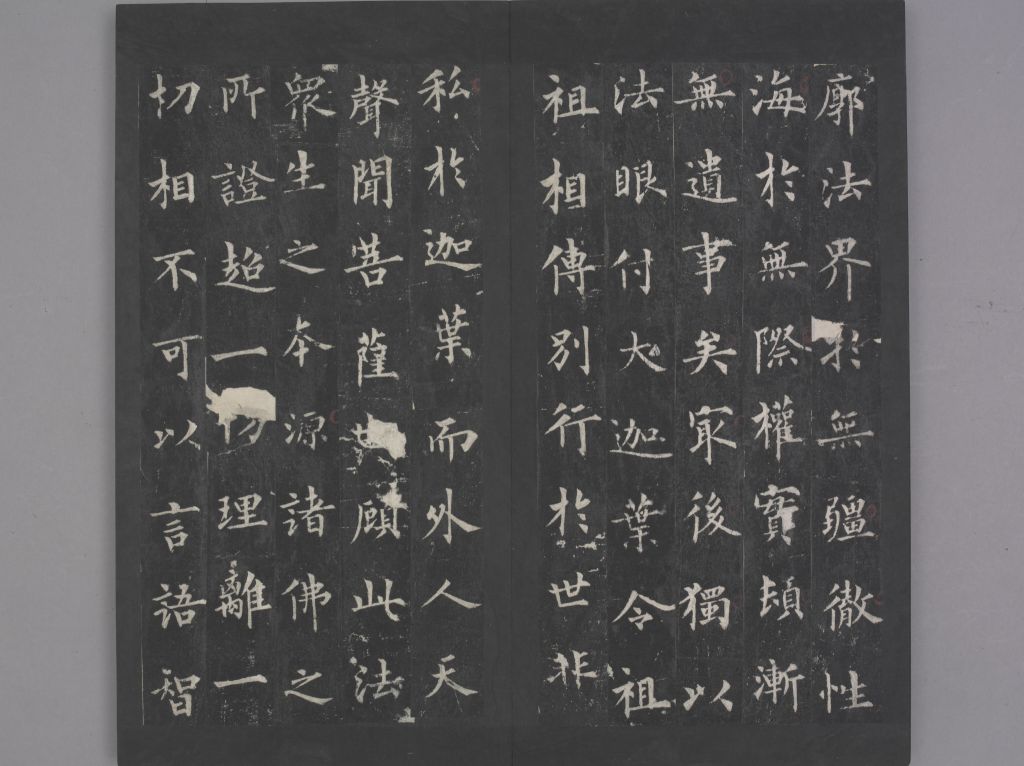 廓法界於無疆徹性
海於無際權實頓漸
無遺事矣冣後獨以
法眼付大迦葉令祖
祖相傳別行於世非
私於迦葉而外人天
聲聞菩薩也顧此法
衆生之本源諸佛之
所證超一切理離一
切相不可以言語智